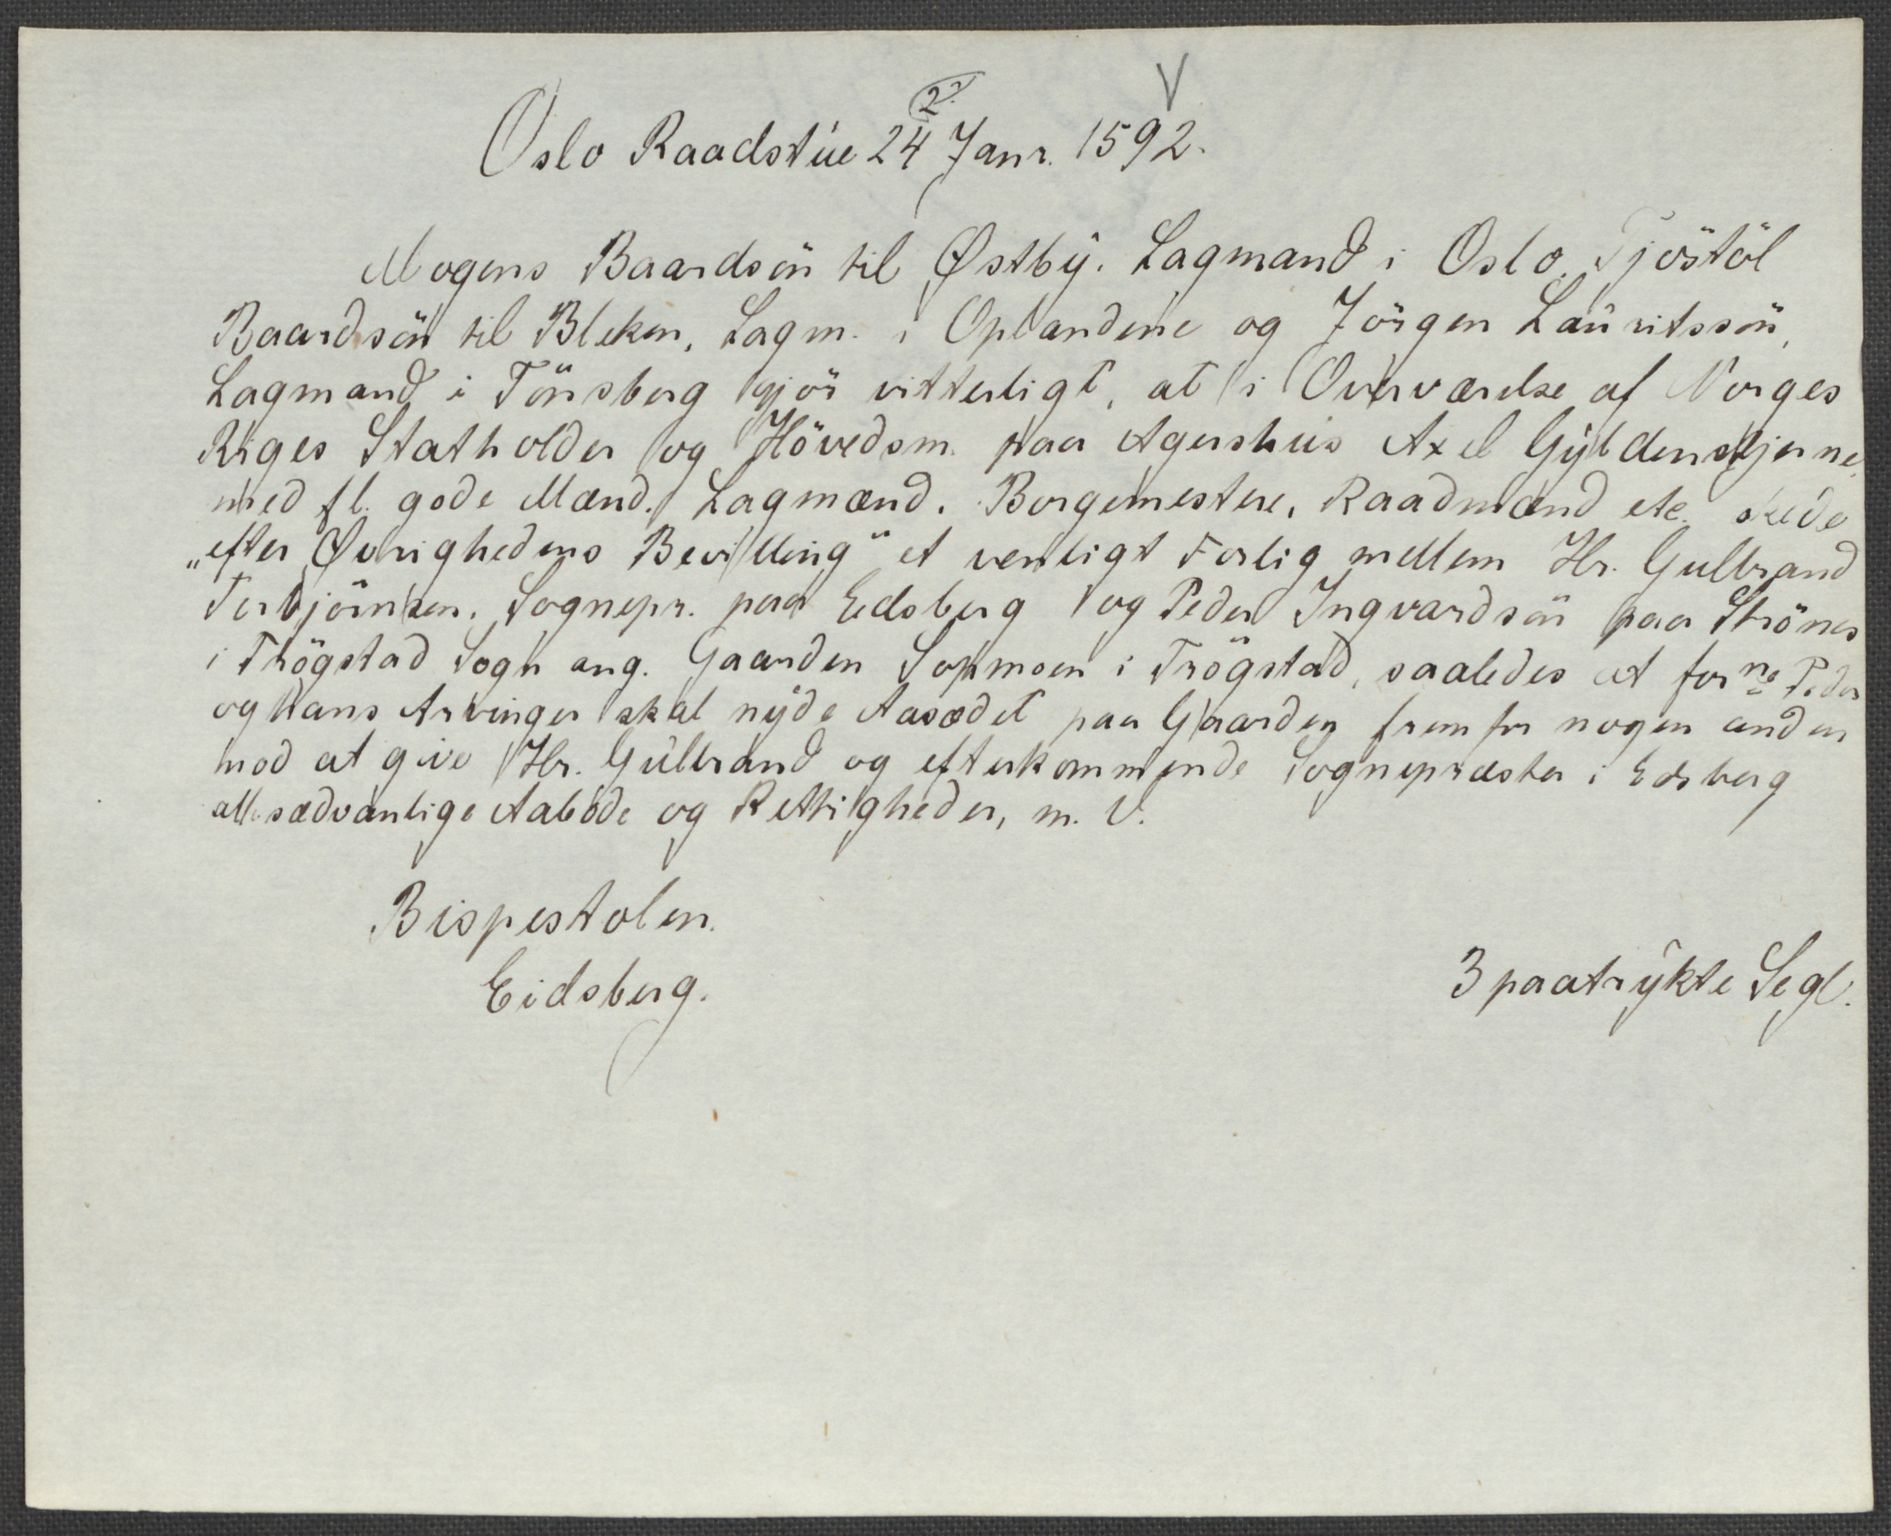 V
2.
Oslo Raadstue 24 Janr. 1592.
Mogens Baardsön til Østby. Lagmand i Oslo, Tjöstöl
Baardsön til Bleken, Lagm. i Oplandene og Jörgen Lauritssön,
Lagmand i Tönsberg gjör vitterligt, at i Overværelse af Norges
Riges Statholder og Hövedsm. paa Agershuus Axel Gyldenstjerne
med fl. gode Mænd, Lagmænd, Borgemestere, Raadmænd etc. skede
„efter Øvrighedens Bevilling“ et venligt Forlig mellem Hr. Gulbrand
Torbjörnsen, Sognepr. paa Edsberg og Peder Ingvardsön paa Strönes
i Trögstad Sogn ang. Gaarden Sopmoen i Trögstad, saaledes at forne Peder
og hans Arvinger skal nyde Aasædet paa Gaarden fremfor nogen anden
mod at give Hr. Gulbrand og efterkommende Sognepræster i Edsberg
alle sædvanlige Aabode og Rettigheder, m. V.
Bispestolen.
Eidsberg.
3 paatrykte Segl.